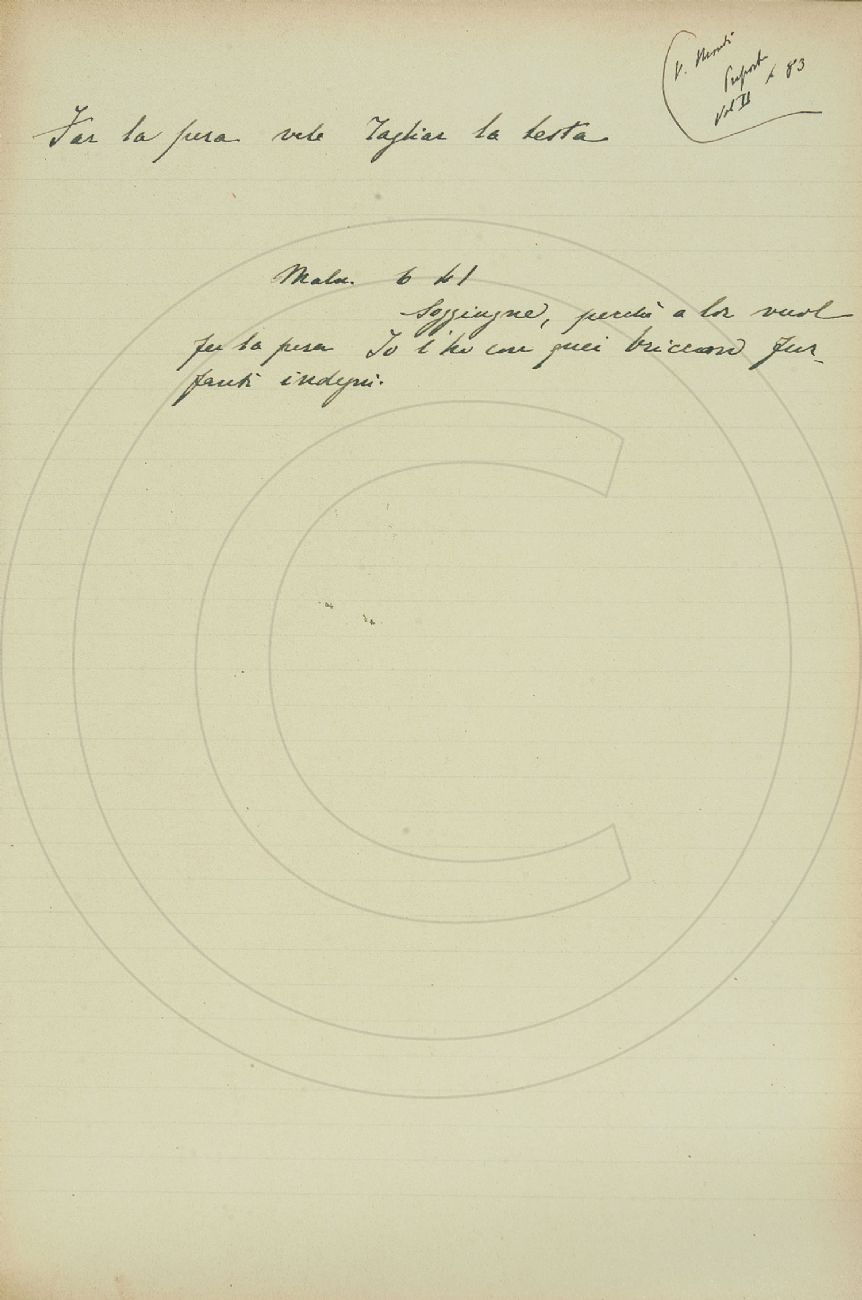 V. Monti
Propost
Vol II 83
Far la pera vale Tagliar la testa
Malm. 6 41
Soggiugne, perchè a lor vuol
far la pera Io l'ho con quei bricconi fur-
fanti indegni.